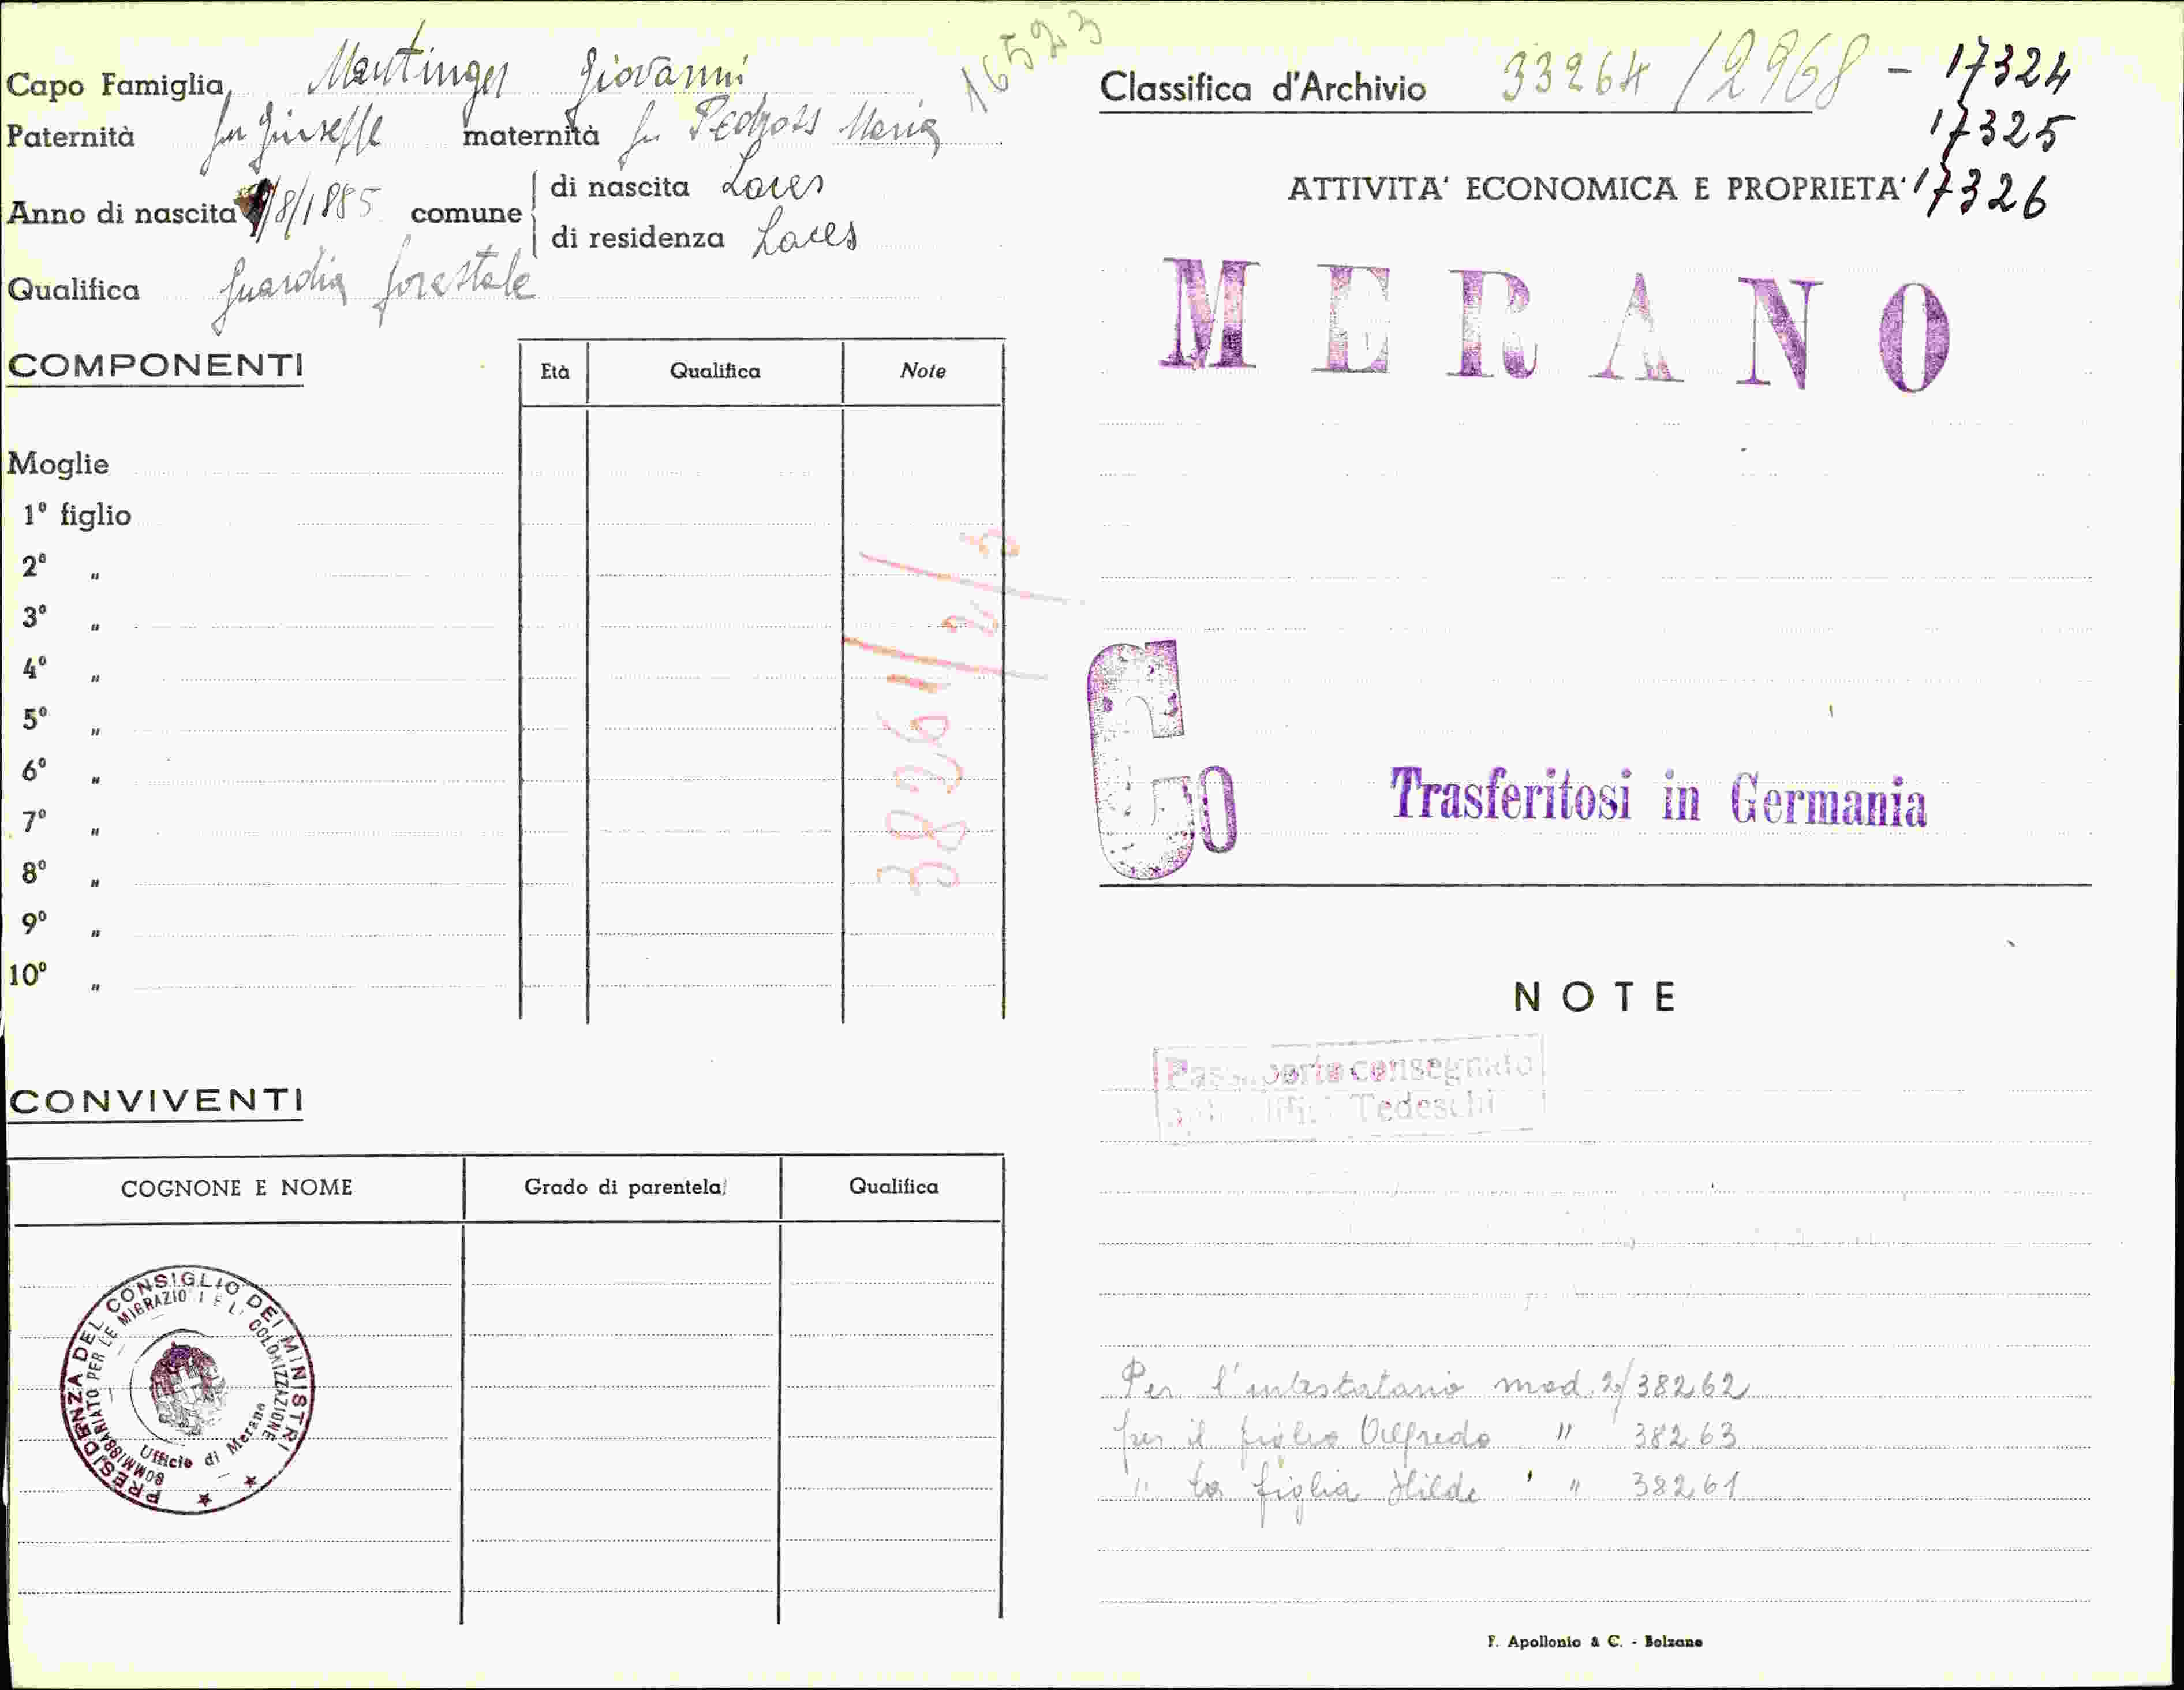 Capo Famiglia Mantinger Giovanni
16523
Paternità fu Giuseppe maternità fu Pedross Maria
Anno di nascita /8/1885 comune
di nascita Laces
di residenza Laces
Qualifica Guardia forestale
COMPONENTI
Età Qualifica Note
Moglie
1° figlio
2° "
3° "
4° "
5° "
6° "
7° "
8° "
9° "
10° "
38261/2/3
CONVIVENTI
COGNONE E NOME Grado di parentela Qualifica
PRESIDENZA DEL CONSIGLIO DEI MINISTRI
COMMISSARIATO PER LE MIGRAZIONI E LA COLONIZZAZIONE
Ufficio di Merano
Classifica d'Archivio 33264 / 2968 - 17324
17325
ATTIVITA' ECONOMICA E PROPRIETA' 17326
MERANO
Go
Trasferitosi in Germania
NOTE
Passaporto consegnato
agli Uffici Tedeschi
Per l'intestatario mod. 2/38262
per il figlio Alfredo " 38263
" la figlia Hilde " " 38261
F. Apollonio & C. - Bolzano